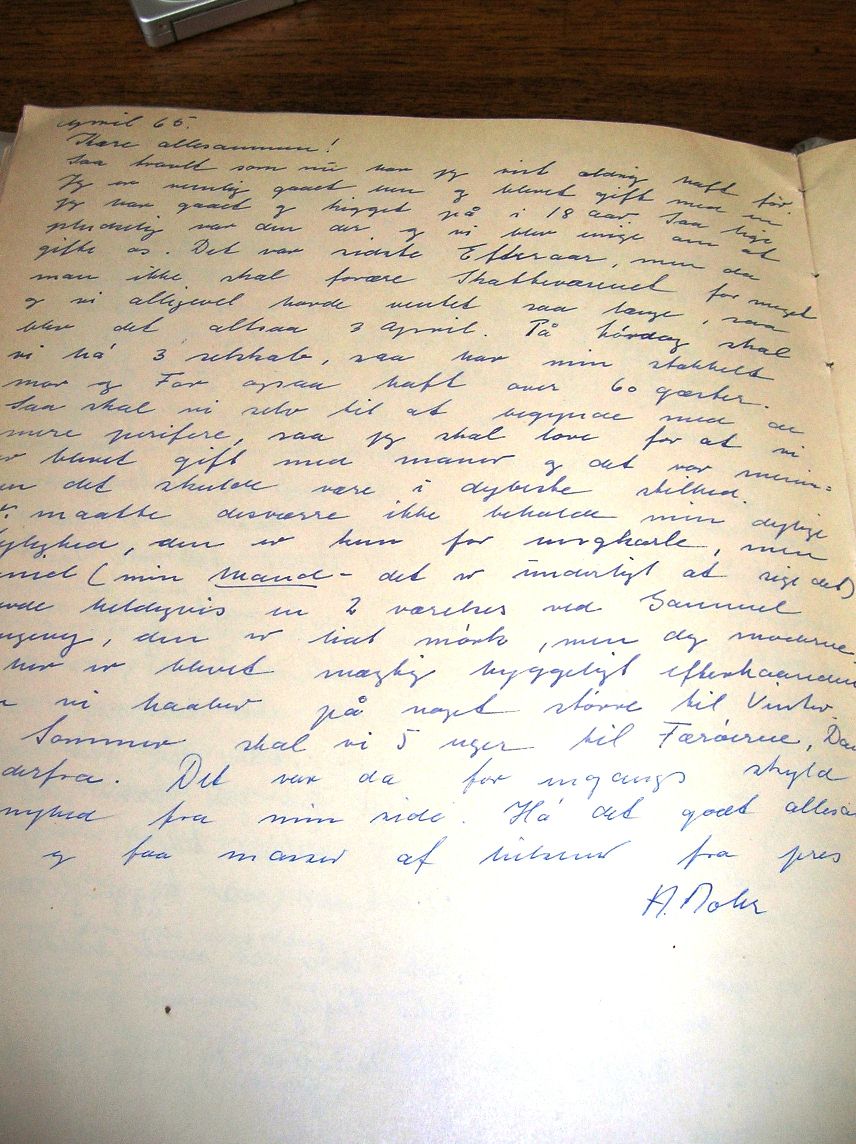 April 65.
Kære allesammen!
Saa travlt som nu har jeg vist aldrig haft før.
Jeg er nemlig gaaet hen og blevet gift med en
jeg har gaaet og kigget på i 18 aar. Saa lige
pludselig var den der og vi blev enige om at
gifte os. Det var sidste Efteraar, men da
man ikke skal forære Skattevæsenet for meget
og vi alligevel havde ventet saa længe, saa
blev det altsaa 3 April. På lørdag skal
vi há 3 selskab, saa har min stakkels
mor og Far ogsaa haft over 60 gæster.
Saa skal vi selv til at begynde med de
mere perifere, saa jeg skal love for at vi
er blevet gift med manér og det var menin-
en det skulde være i dybeste stilhed.
maatte desværre ikke beholde min dejlige
jlighed, den er kun for ungkarle, men
(min Mand - det er underligt at sige det)
vde heldigvis en 2 værelses ved Gammel
ngevej, den er lidt mørk, men dog moderne,
her er blevet mægtig hyggeligt efterhaanden
vi haaber på noget større til Vinter.
Sommer skal vi 5 uger til Færøerne, Da
derfra. Det var da for engangs skyld
nyhed fra min side. Há det godt allesa
og faa masser af hilsener fra
A. Mohr